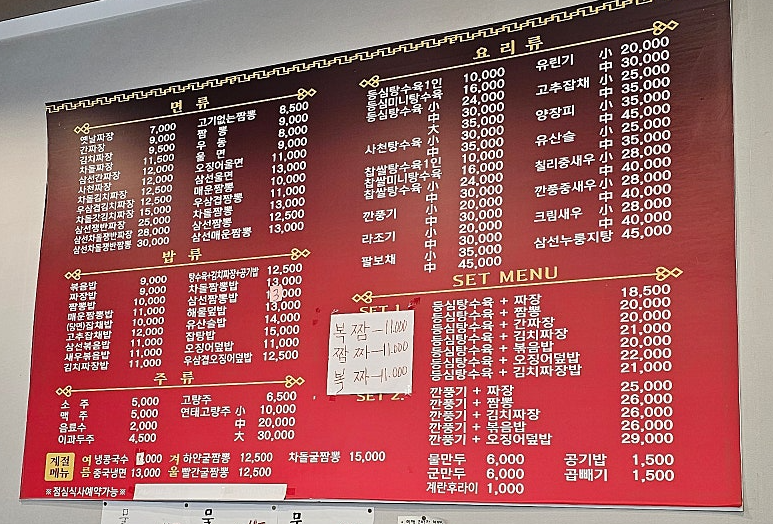 면 류
옛날짜장 7,000
간짜장 9,000
김치짜장 9,500
차돌짜장 11,500
삼선간짜장 12,000
사천짜장 12,000
차돌김치짜장 12,000
우삼겹김치짜장 12,500
차돌갓김치짜장 15,000
삼선쟁반짜장 25,000
삼선차돌쟁반짜장 28,000
삼선차돌쟁반짬뽕 30,000
고기없는짬뽕 8,500
짬 뽕 9,000
우 동 8,000
울 면 9,000
오징어울면 11,000
삼선울면 13,000
매운짬뽕 10,000
우삼겹짬뽕 11,000
차돌짬뽕 13,000
삼선짬뽕 12,500
삼선매운짬뽕 13,000
밥 류
볶음밥 9,000
짜장밥 9,000
짬뽕밥 10,000
매운짬뽕밥 11,000
(당면)잡채밥 10,000
고추잡채밥 12,000
삼선볶음밥 11,000
새우볶음밥 11,000
김치짜장밥 11,000
탕수육+김치짜장+공기밥 12,500
차돌짬뽕밥 13,000
삼선짬뽕밥
해물덮밥 13,000
유산슬밥 14,000
잡탕밥 15,000
오징어덮밥 11,000
우삼겹오징어덮밥 12,500
주 류
소 주 5,000
맥 주 5,000
음료수 2,000
이과두주 4,500
고량주 6,500
연태고량주 小 10,000
中 20,000
大 30,000
계절메뉴
여름 냉콩국수
중국냉면 13,000
겨울 하얀굴짬뽕 12,500
빨간굴짬뽕 12,500
차돌굴짬뽕 15,000
※점심식사예약가능※
요 리 류
등심탕수육1인 10,000
등심미니탕수육 16,000
등심탕수육 小 24,000
中 30,000
大 35,000
사천탕수육 小 30,000
中 35,000
찹쌀탕수육1인 10,000
찹쌀미니탕수육 16,000
찹쌀탕수육 小 24,000
中 30,000
깐풍기 小 20,000
中 30,000
라조기 小 20,000
中 30,000
팔보채 小 35,000
中 45,000
유린기 小 20,000
中 30,000
고추잡채 小 25,000
中 35,000
양장피 小 35,000
中 45,000
유산슬 小 35,000
中 45,000
칠리중새우 小 28,000
中 40,000
깐풍중새우 小 28,000
中 40,000
크림새우 小 28,000
中 40,000
삼선누룽지탕 45,000
SET MENU
SET 1.
등심탕수육 + 짜장 18,500
등심탕수육 + 짬뽕 20,000
등심탕수육 + 간짜장 20,000
등심탕수육 + 김치짜장 21,000
등심탕수육 + 볶음밥 20,000
등심탕수육 + 오징어덮밥 22,000
등심탕수육 + 김치짜장밥 21,000
SET 2.
깐풍기 + 짜장 25,000
깐풍기 + 짬뽕 26,000
깐풍기 + 김치짜장 26,000
깐풍기 + 볶음밥 26,000
깐풍기 + 오징어덮밥 29,000
물만두 6,000
군만두 6,000
계란후라이 1,000
공기밥 1,500
곱빼기 1,500
볶짬 - 11,000
짬짜 - 11,000
볶짜 - 11,000